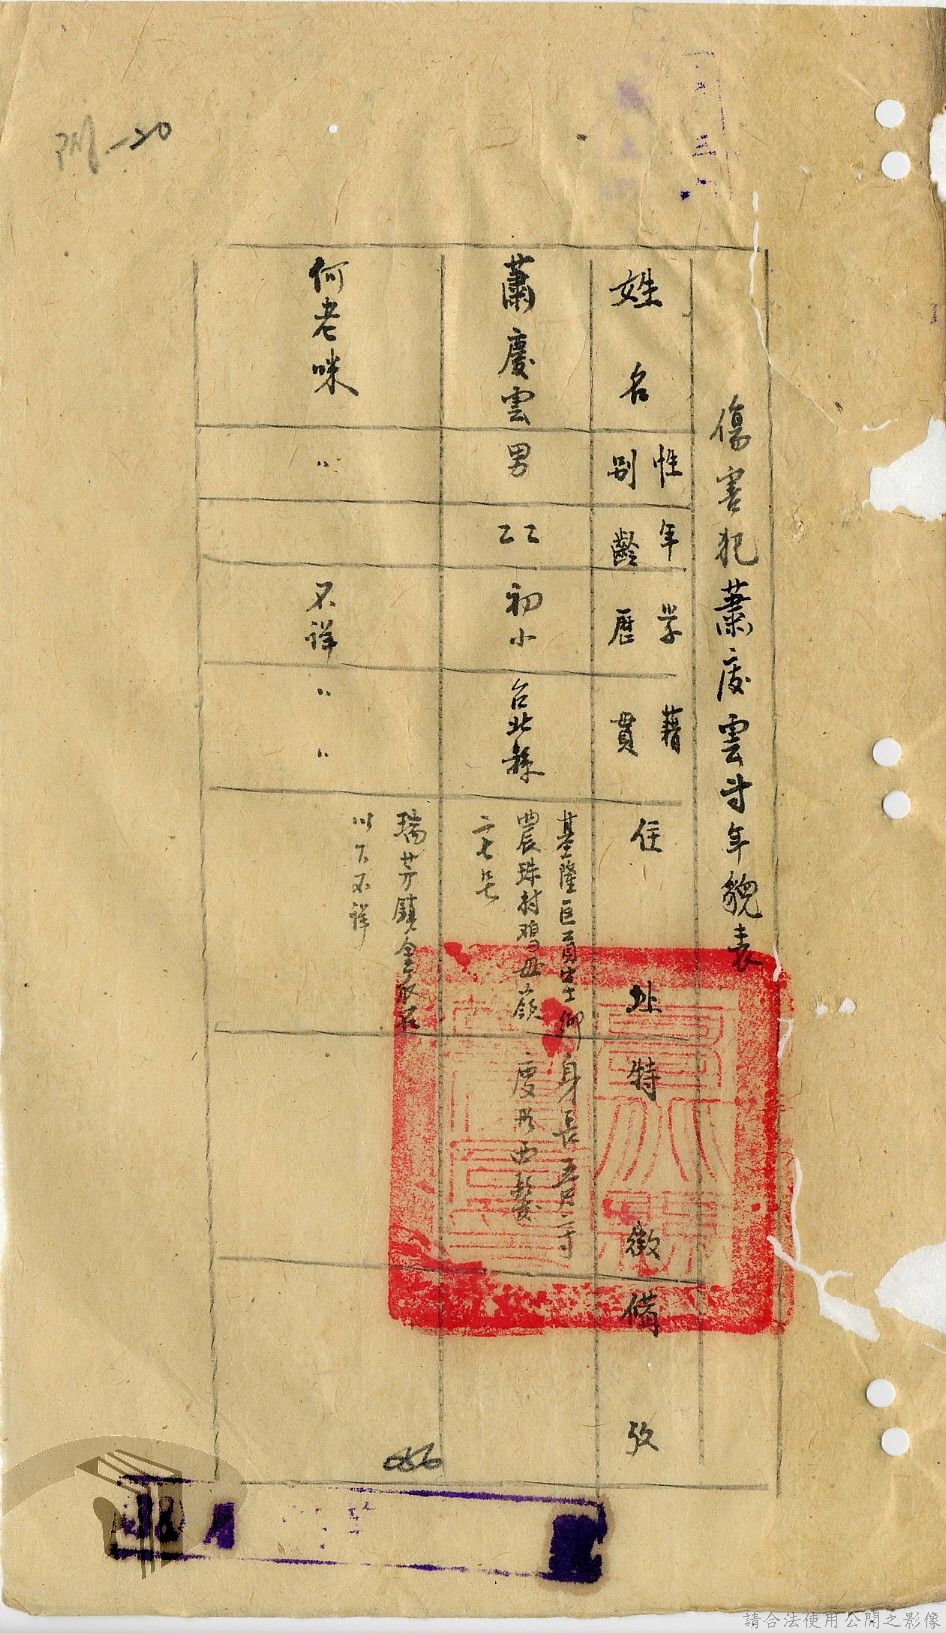 傷害犯蕭慶雲等年貌表
姓名
性別
年齡
学歷
藉貫
住址
特徵
備攷
蕭慶雲
男
二二
初小
台北縣
基隆區貢寮鄉
農珠村鷄母嶺
二七号
身長五尺二寸
瘦形西髮
何老咪
〃
不詳
〃
〃
瑞芳鎮金瓜石
以下不詳
086
請合法使用公開之影像